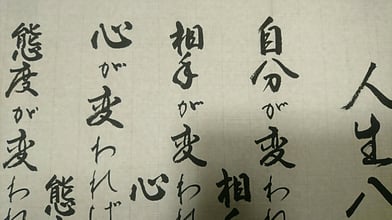 人生八
自分が変わ
相
相手が変わ
心
心が変われば
態
態度が変われ